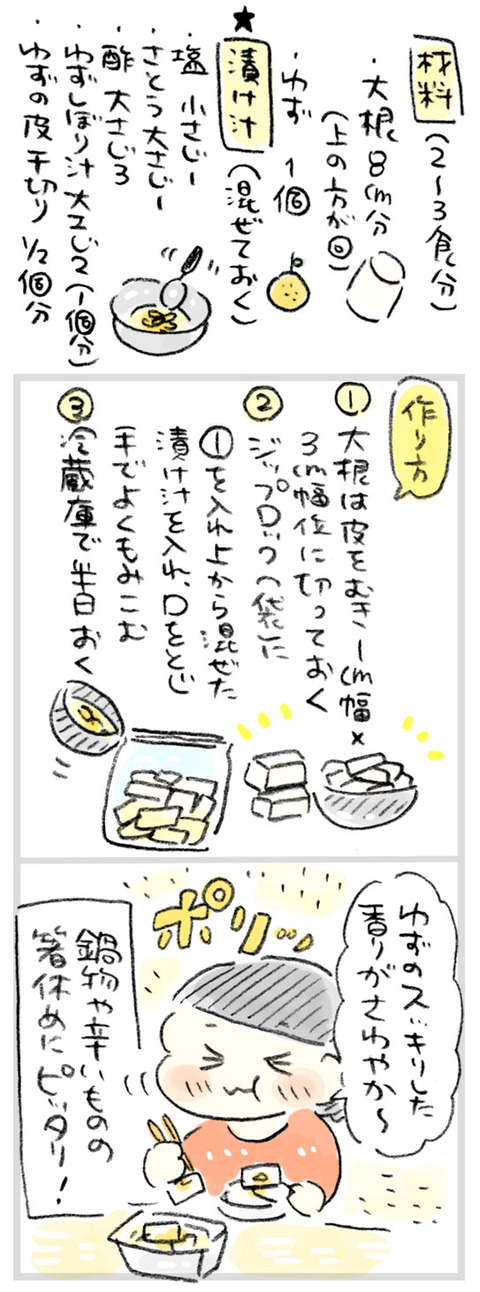 材料（2〜3食分）
・大根8cm分
（上の方が◎）
・ゆず 1個
★
漬け汁（混ぜておく）
・塩 小さじ1
・さとう 大さじ1
・酢 大さじ3
・ゆずしぼり汁 大さじ2（1個分）
・ゆずの皮千切り 1/2個分
作り方
① 大根は皮をむき1cm幅×
3cm幅位に切っておく
② ジップロック（袋）に
①を入れ上から混ぜた
漬け汁を入れ、口をとじ
手でよくもみこむ
③ 冷蔵庫で半日おく
ゆずのスッキリした
香りがさわやか〜
ポリッ
鍋物や辛いものの
箸休めにピッタリ！